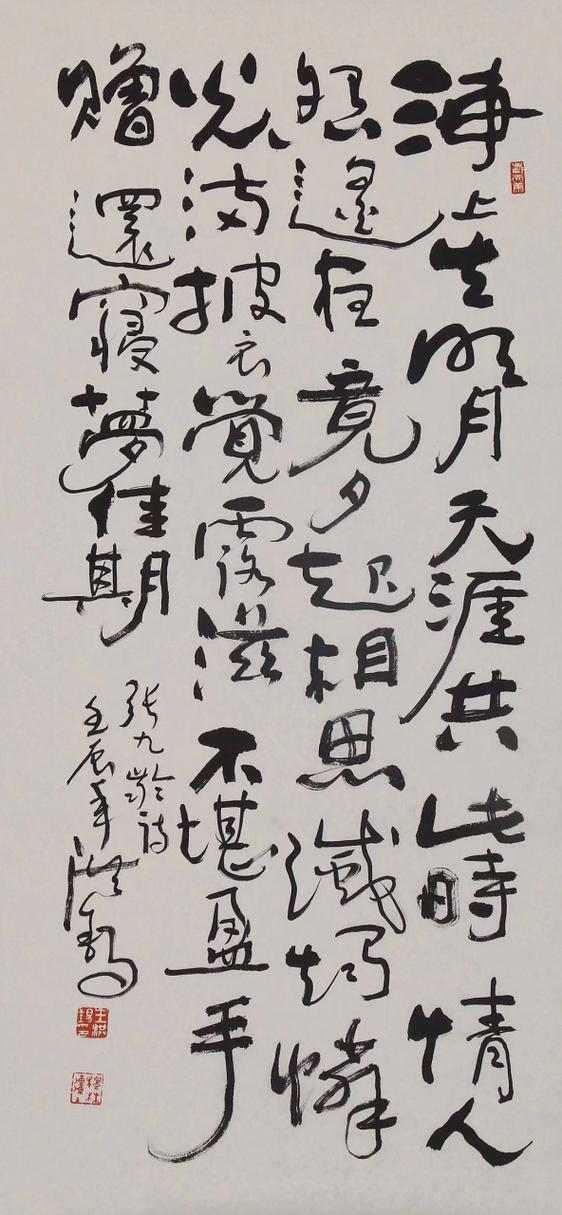 海上生明月天涯共此時情人
怨遙夜竟夕起相思滅燭憐
光滿披衣覺露滋不堪盈手
贈還寢夢佳期
張九齡詩
壬辰年洪錫
王洪錫印